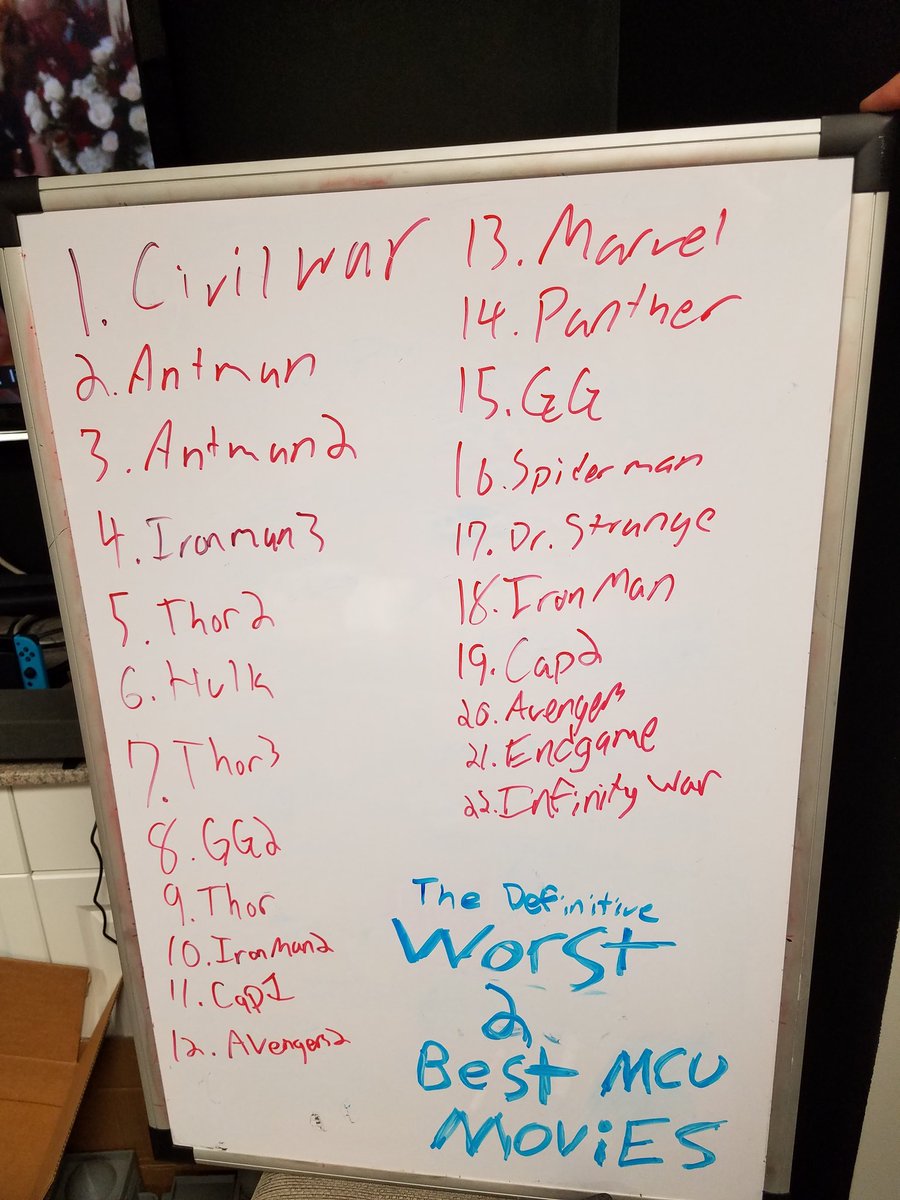 1. Civil war
2. Antman
3. Antman2
4. Ironman3
5. Thor2
6. Hulk
7. Thor3
8. GG2
9. Thor
10. Ironman2
11. Cap1
12. Avengers2
13. Marvel
14. Panther
15. GG
16. Spiderman
17. Dr. Strange
18. Iron Man
19. Cap2
20. Avengers
21. Endgame
22. Infinity war
The Definitive
Worst
2
Best MCU
MOViES